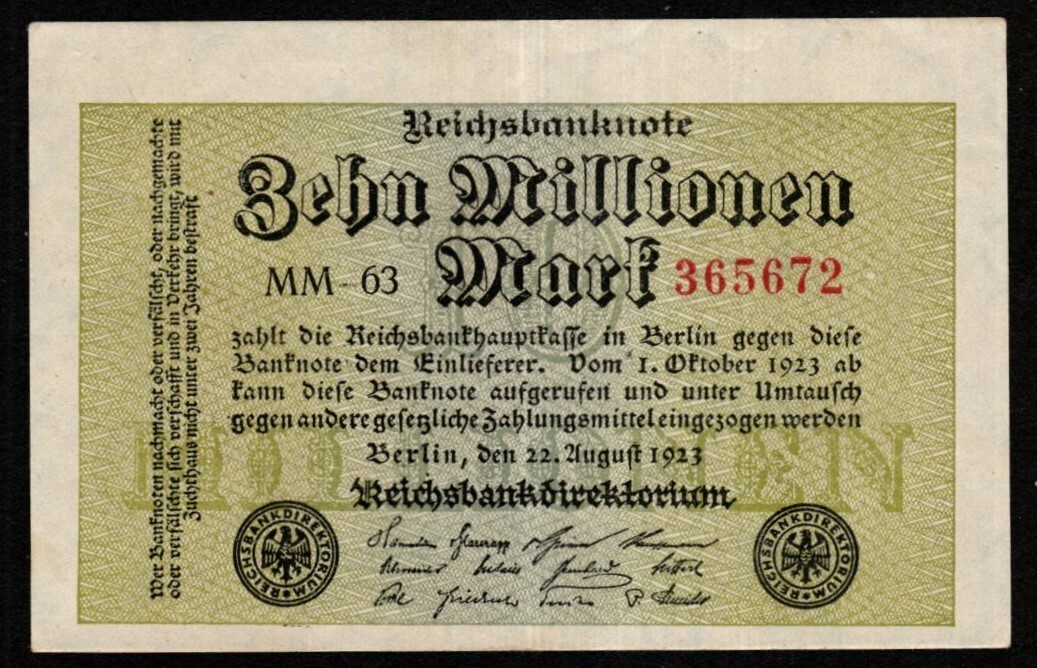 Reichsbanknote
Zehn Millionen
Mark
MM-63
365672
zahlt die Reichsbankhauptkasse in Berlin gegen diese
Banknote dem Einlieferer. Vom 1. Oktober 1923 ab
kann diese Banknote aufgerufen und unter Umtausch
gegen andere gesetzliche Zahlungsmittel eingezogen werden
Berlin, den 22. August 1923
Reichsbankdirektorium
REICHSBANKDIREKTORIUM
REICHSBANKDIREKTORIUM
Wer Banknoten nachmacht oder verfälscht, oder nachgemachte
oder verfälschte sich verschafft und in Verkehr bringt, wird mit
Zuchthaus nicht unter zwei Jahren bestraft